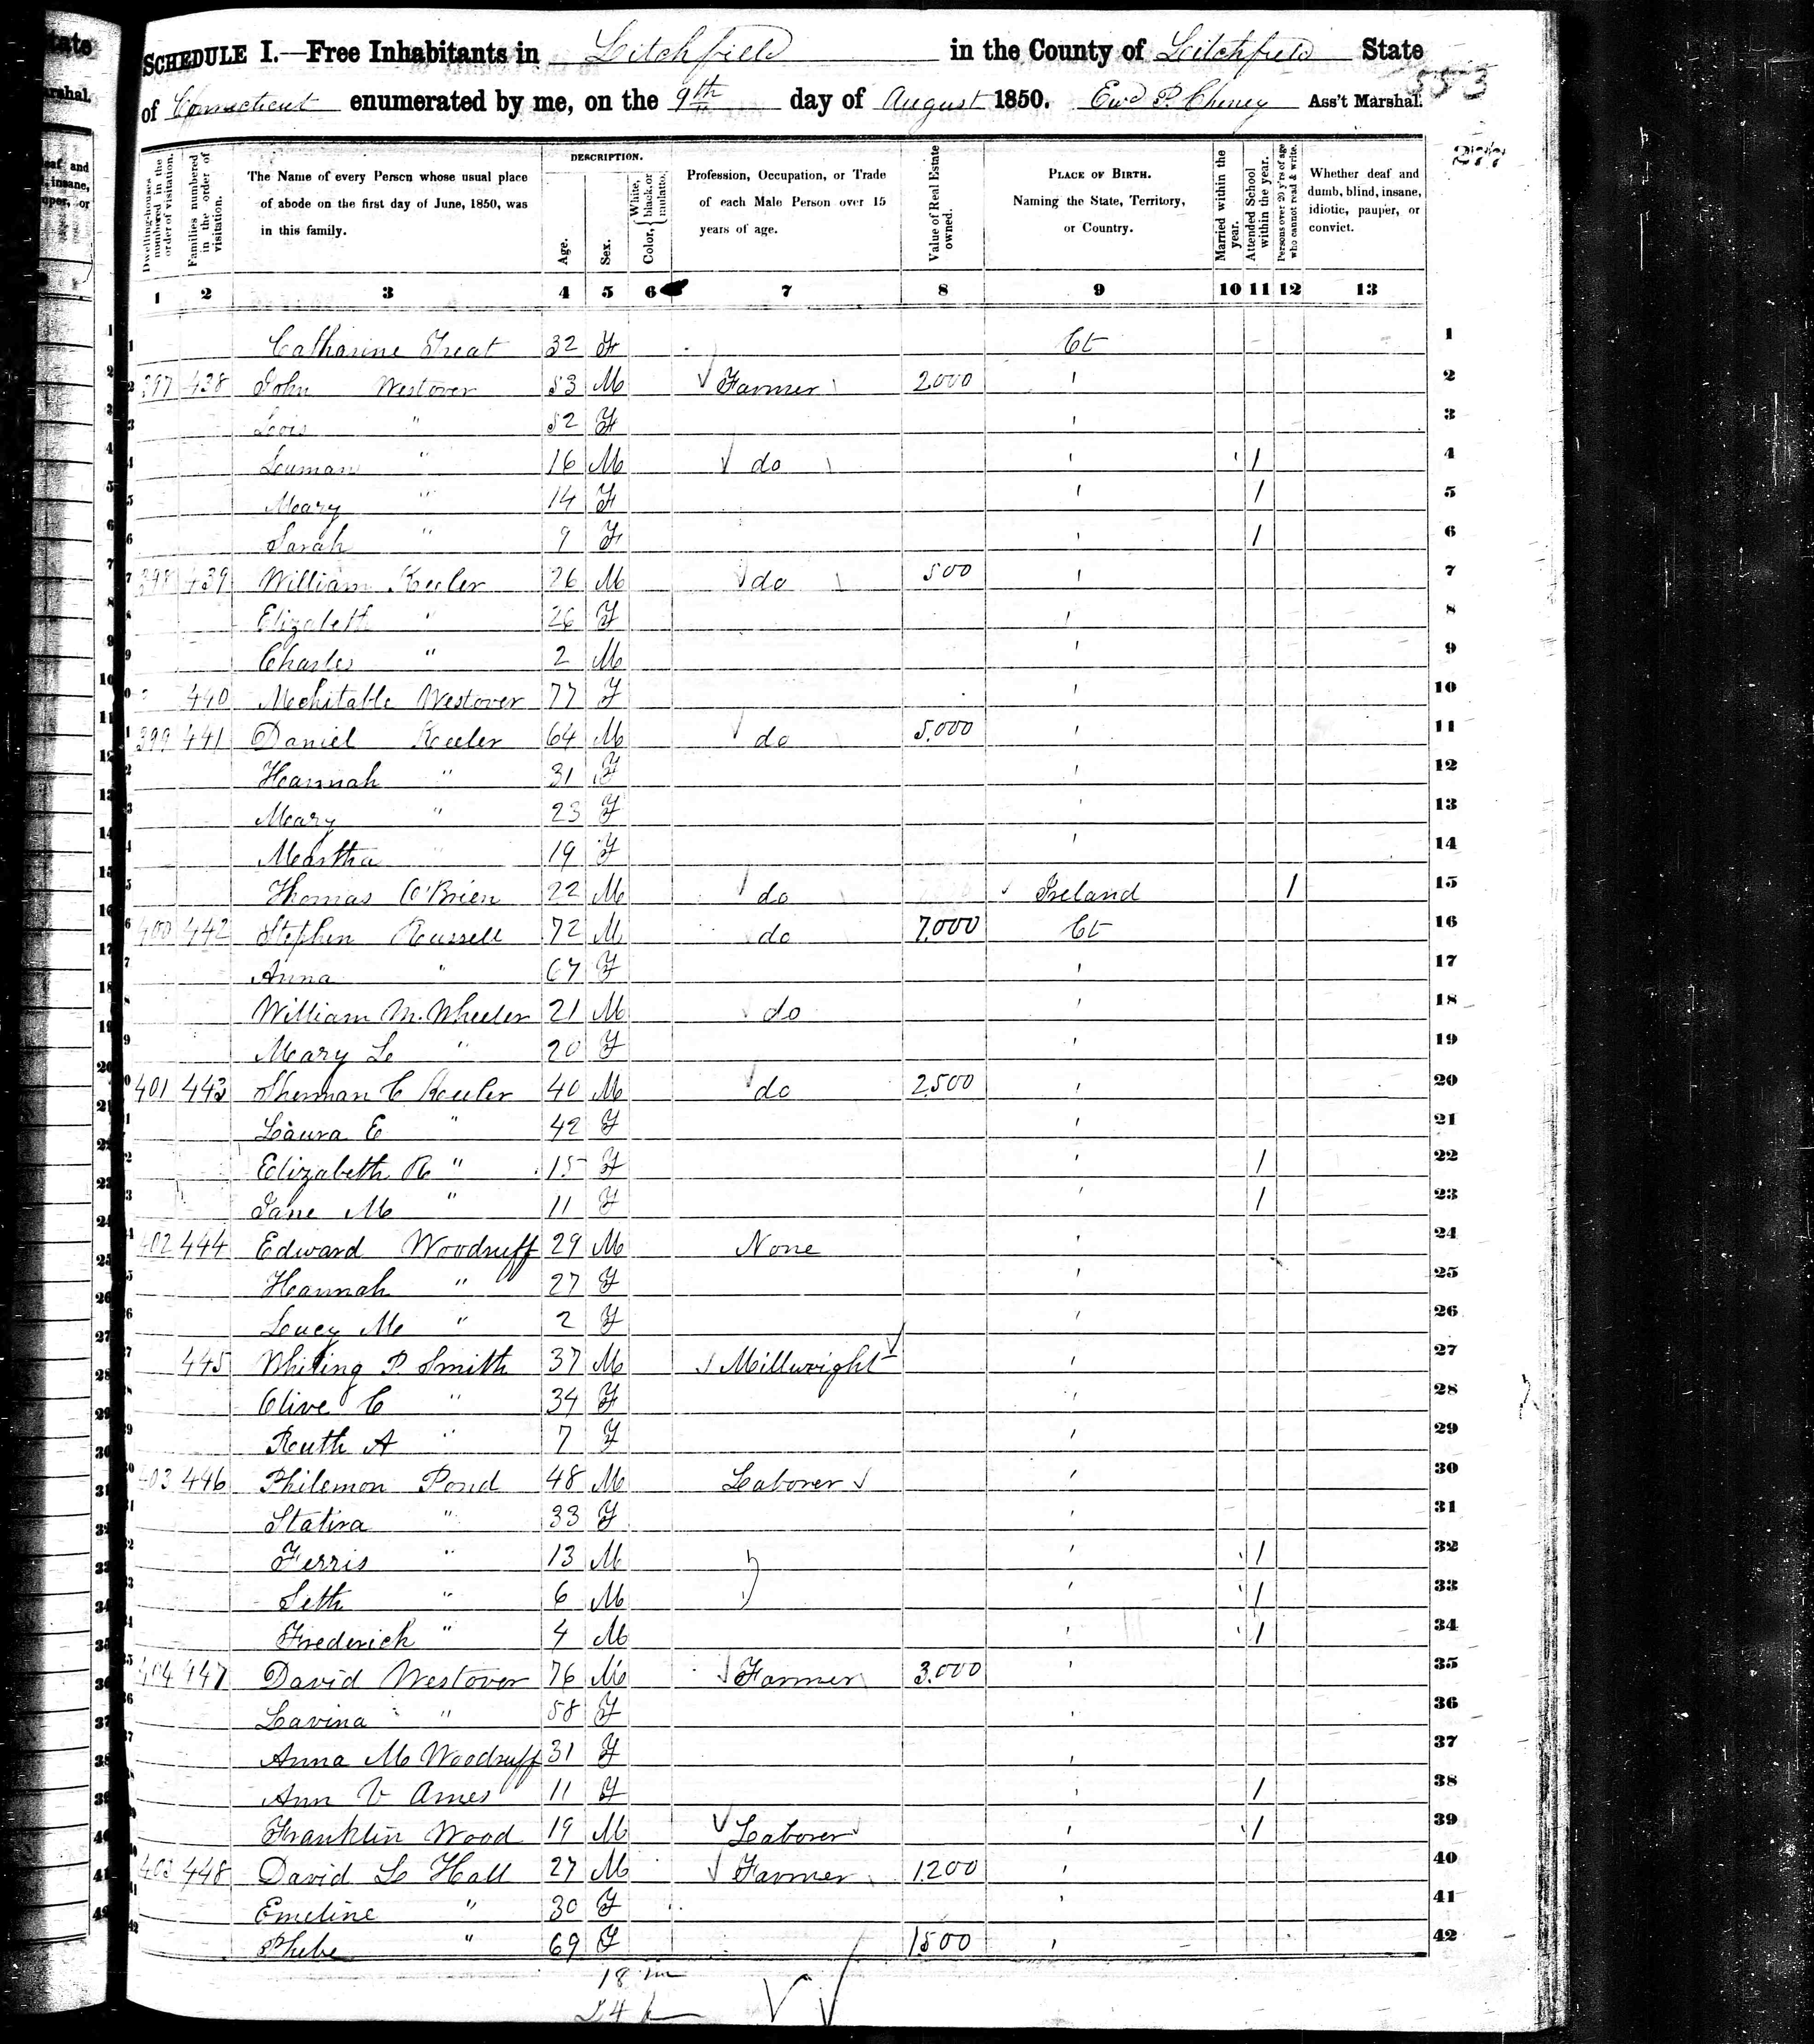 SCHEDULE I.—Free Inhabitants in Litchfield in the County of Litchfield State
of Connecticut enumerated by me, on the 9th day of August 1850. Ewd P. Cheney Ass't Marshal.
553
Dwelling-houses numbered in the order of visitation.
Families numbered in the order of visitation.
The Name of every Person whose usual place of abode on the first day of June, 1850, was in this family.
DESCRIPTION.
Age.
Sex.
Color, { White, black, or mulatto.
Profession, Occupation, or Trade of each Male Person over 15 years of age.
Value of Real Estate owned.
PLACE OF BIRTH. Naming the State, Territory, or Country.
Married within the year.
Attended School within the year.
Persons over 20 y'rs of age who cannot read & write.
Whether deaf and dumb, blind, insane, idiotic, pauper, or convict.
1 2 3 4 5 6 7 8 9 10 11 12 13
1 Catharine Treat 32 F Ct 1
2 397 438 John Westover 53 M Farmer 2000 ' 2
3 Lois " 52 F ' 3
4 Leuman " 16 M do ' 1 4
5 Mary " 14 F ' 1 5
6 Sarah " 9 F ' 1 6
7 398 439 William Keeler 26 M do 500 ' 7
8 Elizabeth " 26 F ' 8
9 Charles " 2 M ' 9
10 440 Mehitable Westover 77 F ' 10
11 399 441 Daniel Keeler 64 M do 5.000 ' 11
12 Hannah " 31 F ' 12
13 Mary " 23 F ' 13
14 Martha " 19 F ' 14
15 Thomas O'Brien 22 M do Ireland 1 15
16 400 442 Stephen Russell 72 M do 7.000 Ct 16
17 Anna " 67 F ' 17
18 William M. Wheeler 21 M do ' 18
19 Mary L " 20 F ' 19
20 401 443 Sherman C Keeler 40 M do 2500 ' 20
21 Laura E " 42 F ' 21
22 Elizabeth R " 15 F ' 1 22
23 Jane M " 11 F ' 1 23
24 402 444 Edward Woodruff 29 M None ' 24
25 Hannah " 27 F ' 25
26 Lucy M " 2 F ' 26
27 445 Whiting P. Smith 37 M Millwright ' 27
28 Olive C " 34 F ' 28
29 Ruth A " 7 F ' 29
30 403 446 Philemon Pond 48 M Laborer ' 30
31 Statira " 33 F ' 31
32 Ferris " 13 M ' 1 32
33 Seth " 6 M ' 1 33
34 Frederick " 4 M ' 1 34
35 404 447 David Westover 76 M Farmer 3.000 ' 35
36 Lavina " 58 F ' 36
37 Anna M Woodruff 31 F ' 37
38 Ann V Ames 11 F ' 1 38
39 Franklin Wood 19 M Laborer ' 1 39
40 448 David L Hall 27 M Farmer 1200 ' 40
41 Emeline " 30 F ' 41
42 Phebe " 69 F 1500 ' 42
18 m
24